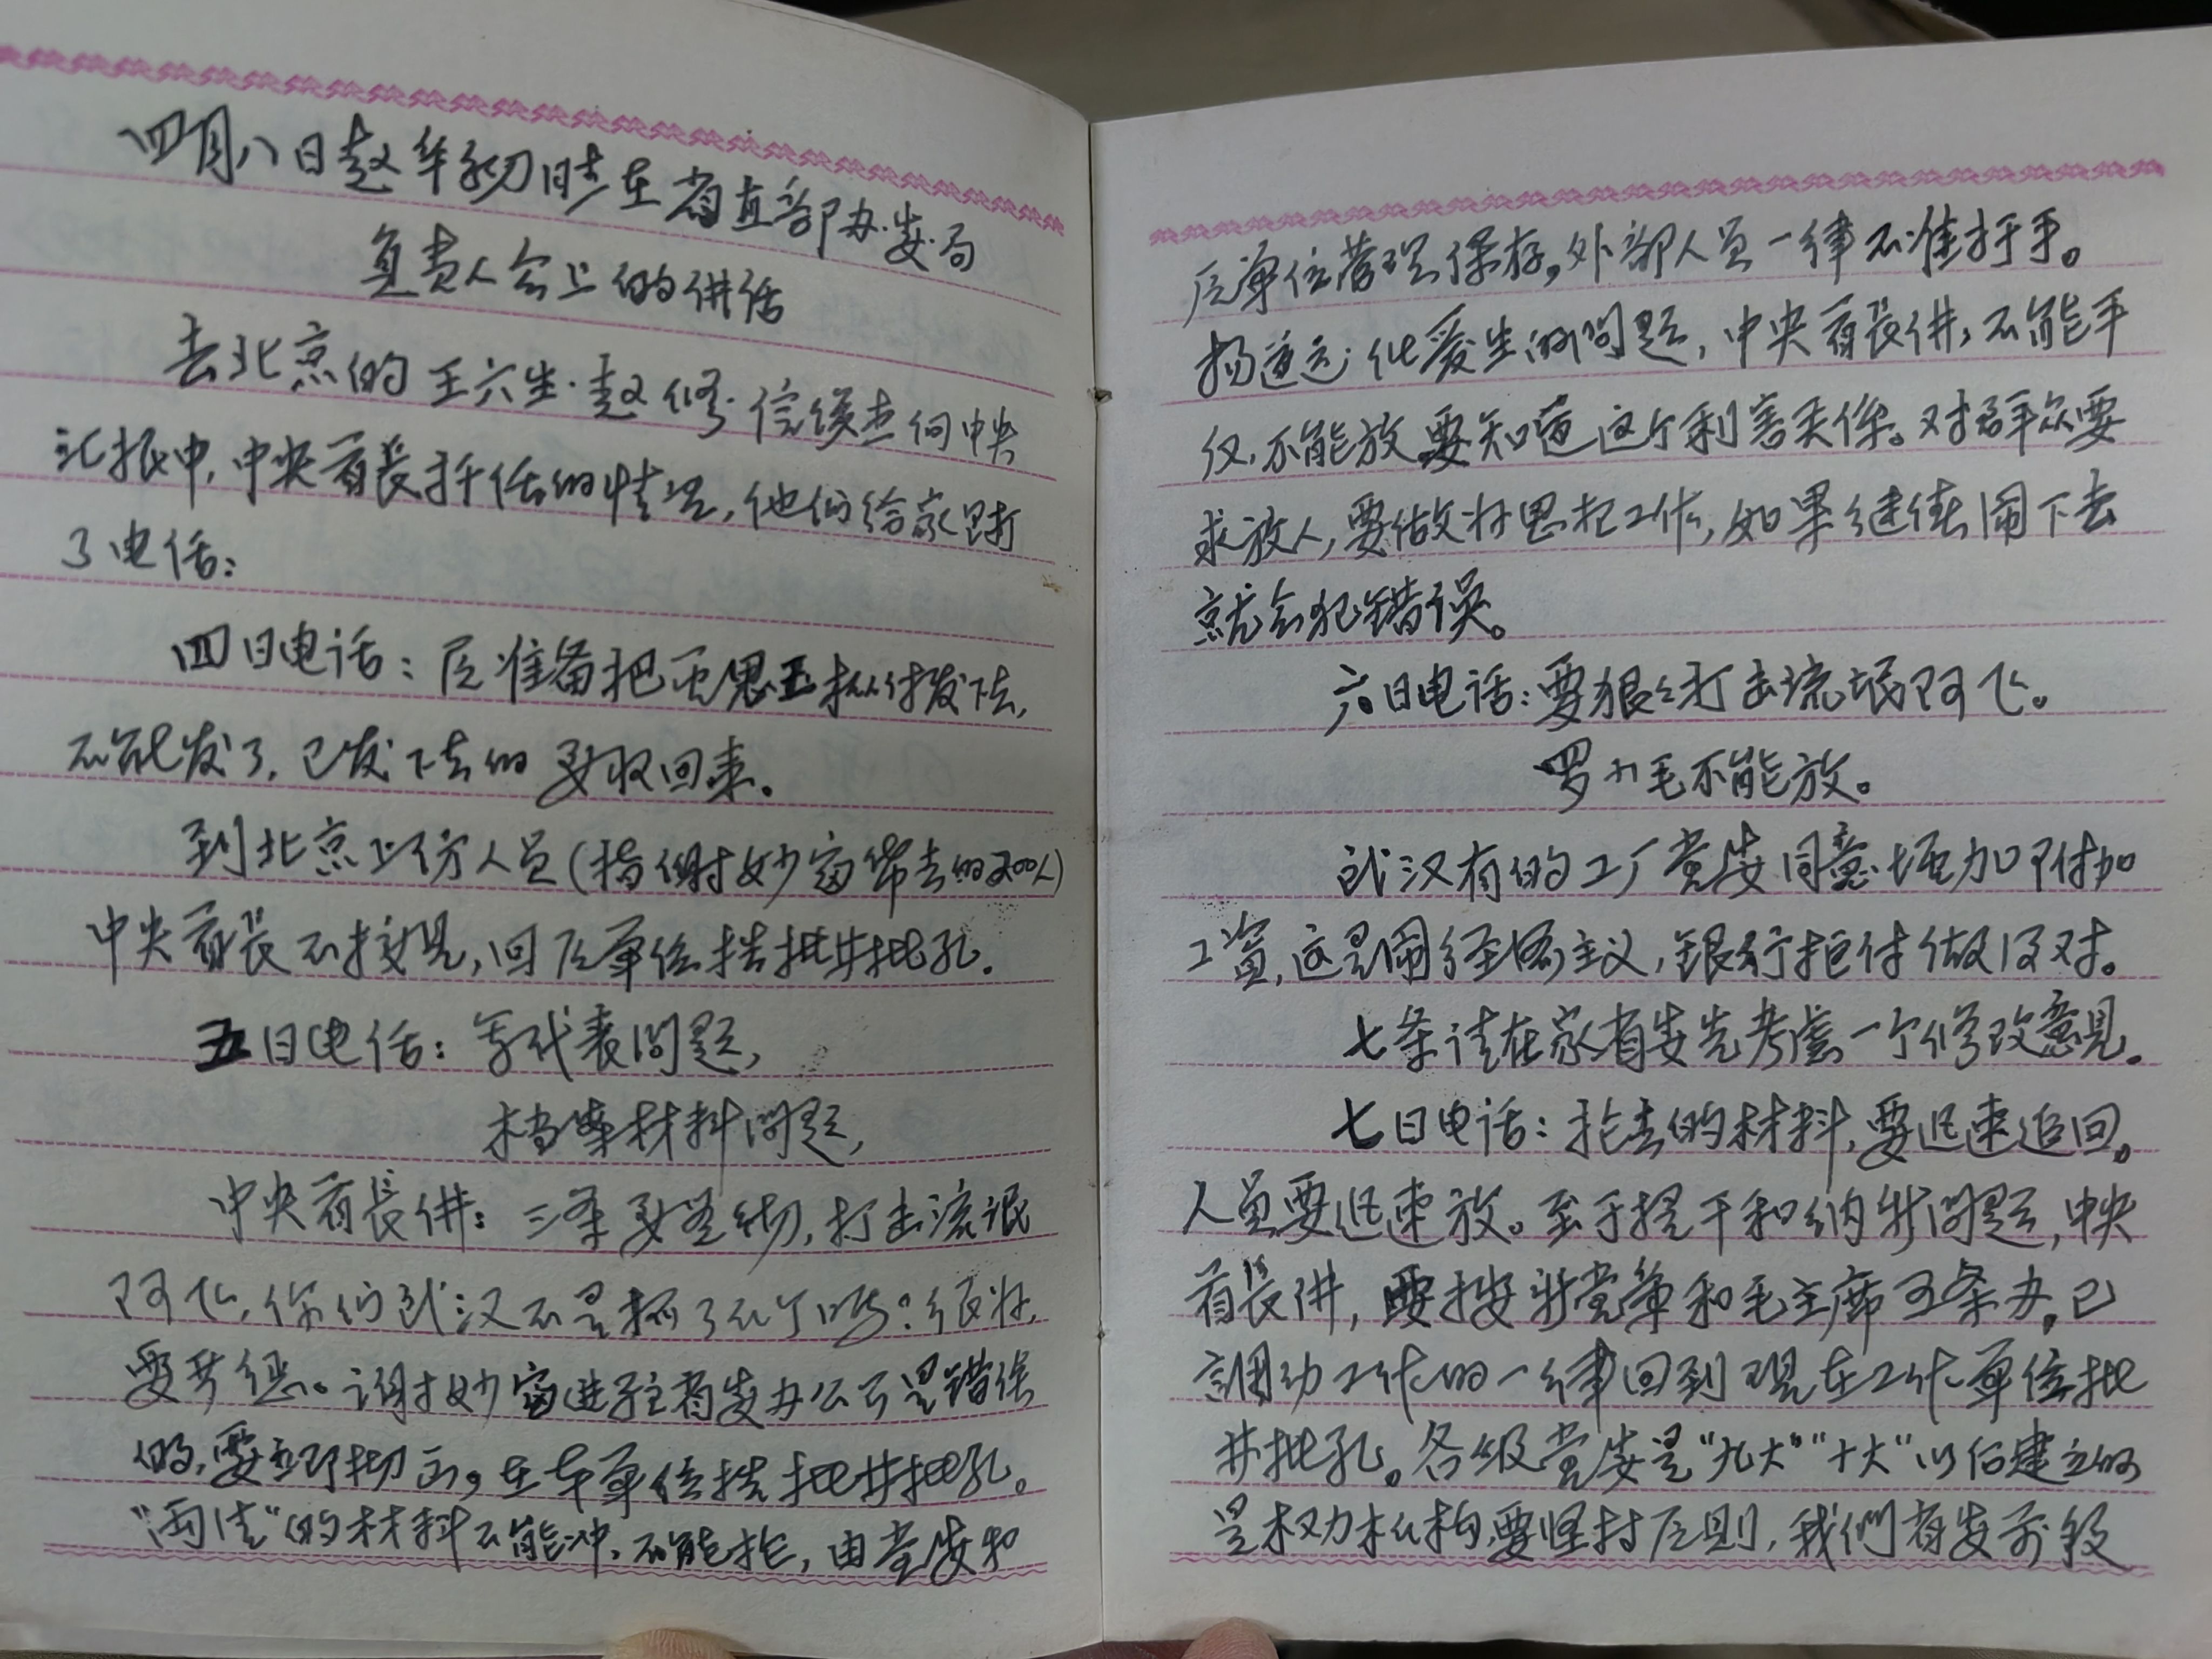 四月八日赵辛初同志在省直部·办·委·局
负责人会上的讲话
去北京的王六生·赵修·信俊杰向中央
汇报中，中央首长扦话的情况，他们给家里打
了电话：
四日电话：反准备把 发下去，
不能发了，已发下去的要收回来。
到北京上访人员（指谢妙富带去的200人）
中央首长不接见，回反单位搞批林批孔。
五日电话：等代表问题，
档案材料问题，
中央首长讲：三条要坚决，打击流氓
阿飞，你们武汉不是抓了几个吗？很好，
要关紧。谢妙富进驻省委办公厅是错误
的，要立即撤出，在本单位搞批林批孔。
“两清”的材料不能冲、不能抢，由党委和
反单位管理保存，外部人员一律不准扦手。
杨道远 发生的问题，中央首长讲，不能平
仅，不能放，要知道这个利害关係。对群众要
求放人，要做好思想工作，如果继续闹下去
就会犯错误。
六日电话：要狠狠打击流氓阿飞。
罗小毛不能放。
武汉有的工厂党委同意增加附加
工资，这是闹经济主义，银行拒付做得对。
七条请在家省委先考虑一个修改意见。
七日电话：抢去的材料，要迅速追回。
人员要迅速放。至于提干和纳新问题，中央
首长讲，要按新党章和毛主席五条办，已
調动工作的一律回到现在工作单位批
林批孔。各级党委是“九大”“十大”以后建立的
是权力机构，要坚持反则，我們省委前段